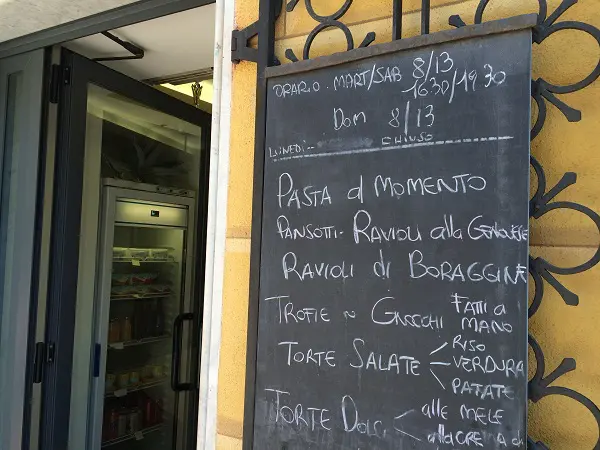 ORARIO. MART/SAB 8/13
16.30/19.30
DOM 8/13
LUNEDI -- CHIUSO
PASTA al MOMENTO
PANSOTTI - RAVIOLI alla GENOVESE
RAVIOLI di BORAGGINE
TROFIE ~ GNOCCHI FATTI a MANO
TORTE SALATE RISO
VERDURA
PATATE
TORTE DOLCI alle MELE
alla CREMA